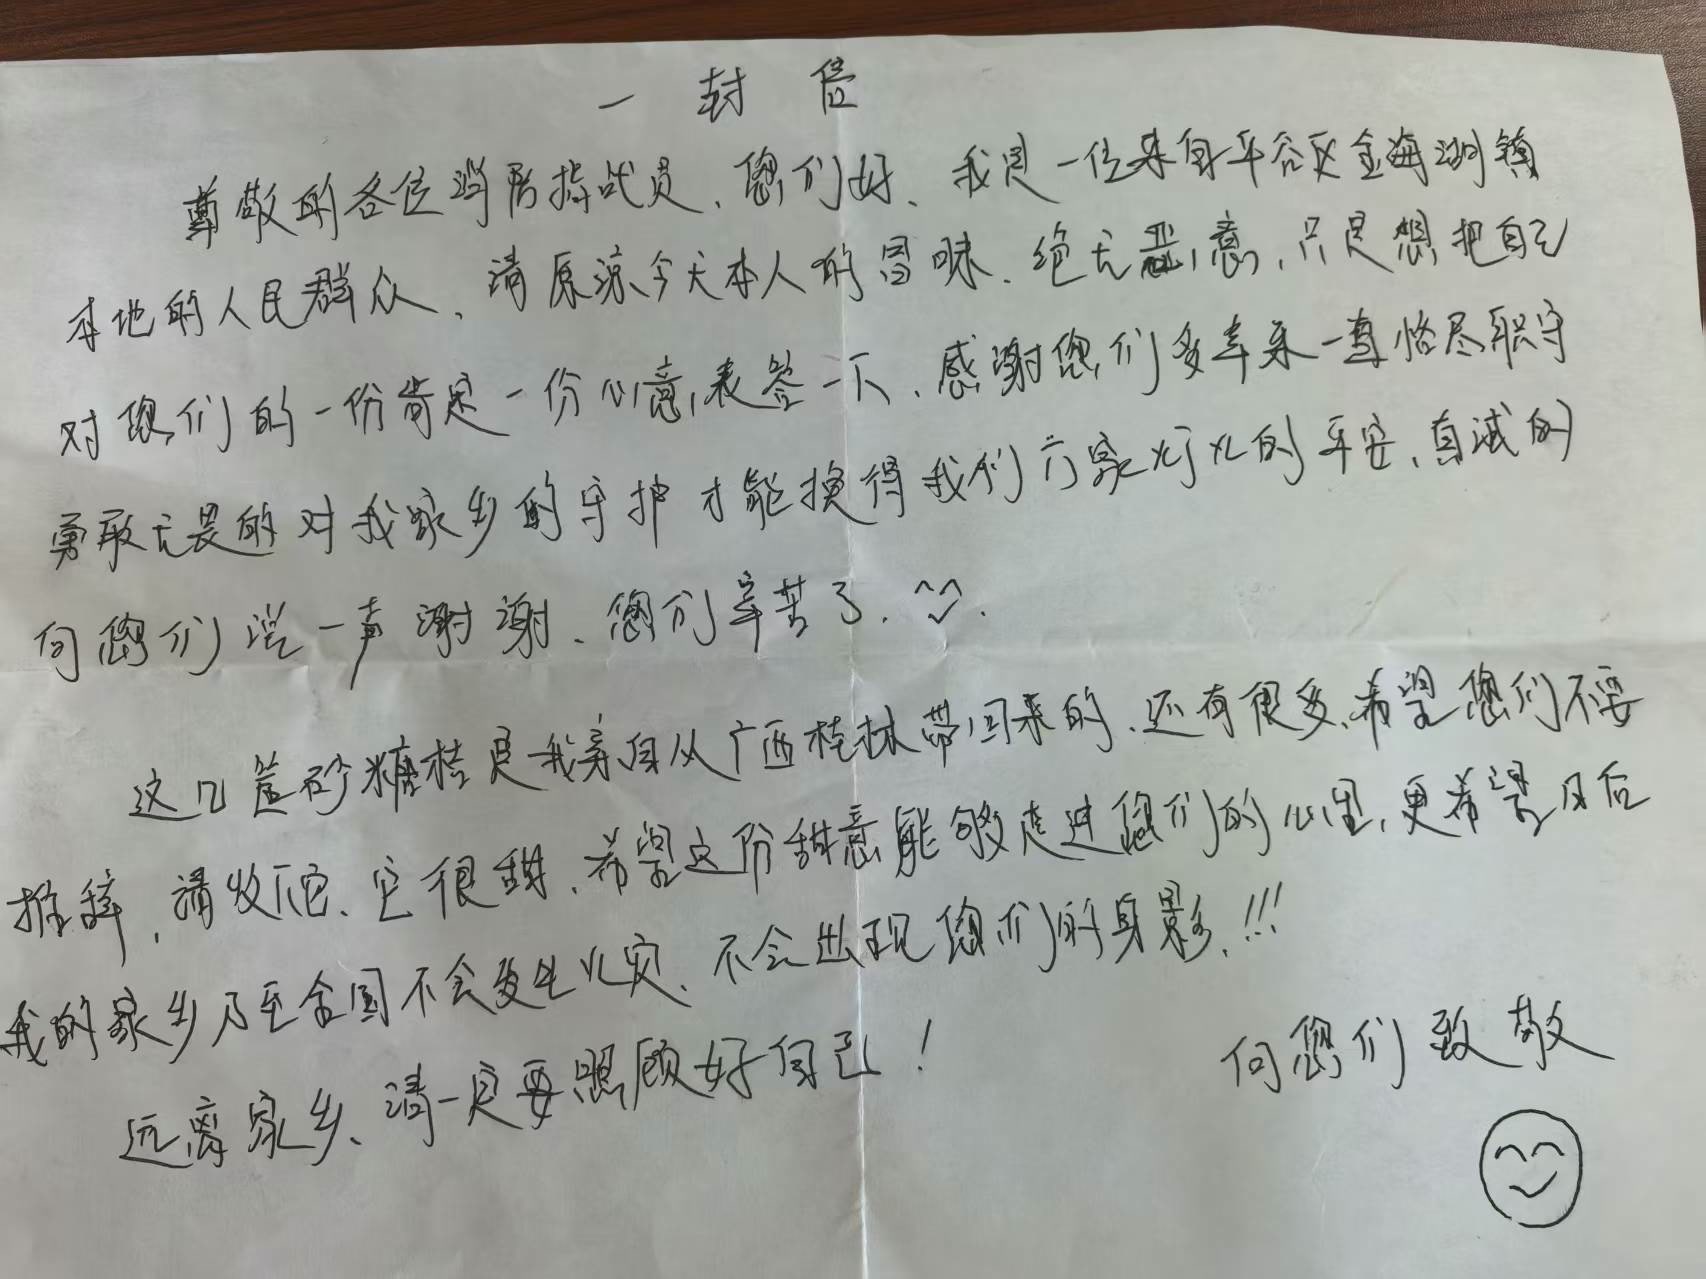 一封信
尊敬的各位消防指战员、您们好、我是一位来自平谷区金海湖镇
本地的人民群众、请原谅今天本人的冒昧、绝无恶意,只是想把自己
对您们的一份肯定一份心意,表答一下、感谢您们多年来一直恪尽职守
勇敢无畏的对我家乡的守护才能换得我们万家灯火的平安、真诚的
向您们说一声谢谢、您们辛苦了.
这几筐砂糖桔是我亲自从广西桂林带回来的、还有很多、希望您们不要
推辞,请收下它、它很甜、希望这份甜意能够走进您们的心里,更希望日后
我的家乡乃至全国不会发生火灾、不会出现您们的身影、!!!
远离家乡、请一定要照顾好自己!
向您们致敬